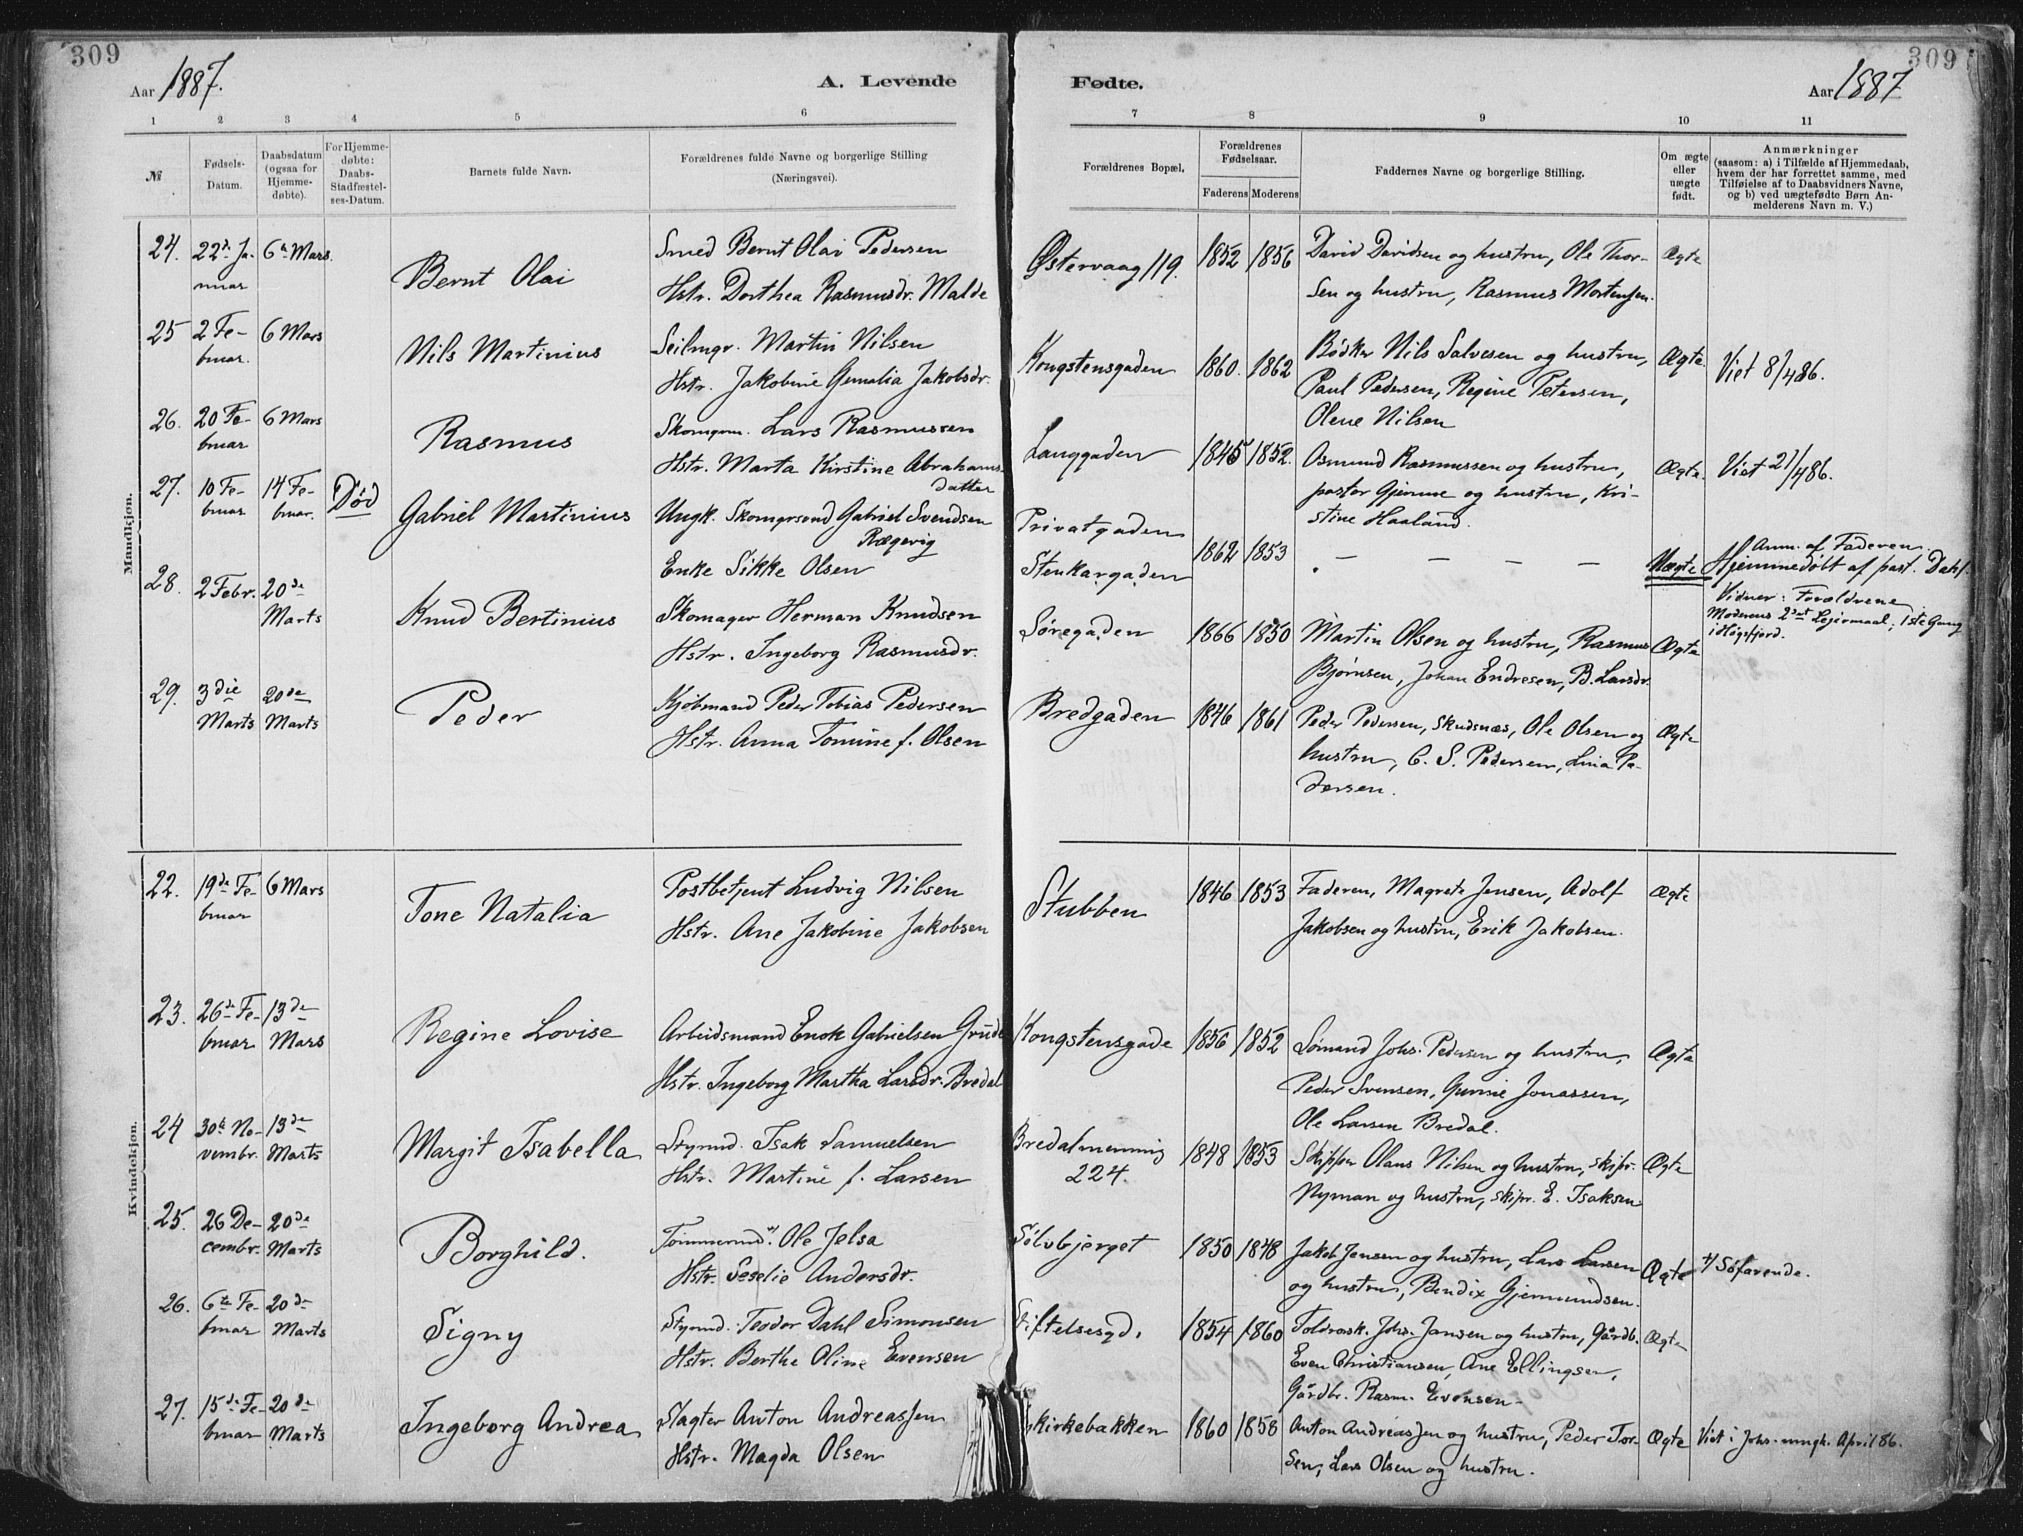 309
309
Aar 1887.
A. Levende
Fødte.
Aar 1887
1 2 3 4 5 6 7 8 9 10 11
№
Fødsels-
Datum.
Daabsdatum
(ogsaa for
Hjemme-
døbte).
For Hjemme-
døbte:
Daabs-
Stadfæstel-
ses-Datum.
Barnets fulde Navn.
Forældrenes fulde Navne og borgerlige Stilling
(Næringsvei).
Forældrenes Bopæl.
Forældrenes
Fødselsaar.
Faderens Moderens
Faddernes Navne og borgerlige Stilling.
Om ægte
eller
uægte
født.
Anmærkninger
(saasom: a) i Tilfælde af Hjemmedaab,
hvem der har forrettet samme, med
Tilføielse af to Daabsvidners Navne,
og b) ved uægtefødte Børn An-
melderens Navn m. V.)
Mandkjøn.
24. 22de Ja-
nuar
6te Mars.
Bernt Olai
Smed Bernt Olai Pedersen
Hstr. Dorthea Rasmusdr. Malde
Østervaag 119.
1852 1856
David Davidsen og hustru, Ole Thor-
sen og hustru, Rasmus Mortensen.
Ægte
25 2 Fe-
bruar.
6 Mars
Nils Martinius
Seilmgr. Martin Nilsen
Hstr. Jakobine Jakobsdr.
Kongstensgaden
1860. 1862
Bødker Nils Salvesen og hustru,
Paul Pedersen, Regine Petersen,
Olene Nilsen
Ægte
Viet 8/4 86.
26. 20 Fe-
bruar
6 Mars
Rasmus
Skomgrm. Lars Rasmussen
Hstr. Marta Kirstine Abrahams-
datter
Langgaden
1845 1852.
Osmund Rasmussen og hustru,
pastor Gjerme og hustru, Kri-
stine Haaland.
Ægte.
Viet 21/4 86.
27. 10 Fe-
bruar
14 Fe-
bruar.
Død
Gabriel Martinius
Ungk. Skomgrsvend Gabriel Svendsen
Rægevig
Enke Sikke Olsen
Privatgaden
Stenkargaden
1862 1853
— — — —
Uægte
Anm. af Faderen.
Hjemmedøbt af past. Dahl.
Vidner: Forældrene
Moderens 2det Leiermaal; 1ste Gang
i Høgsfjord.
28. 2 Febr.
20de
Marts
Knud Bertinius
Skomager Herman Knudsen
Hstr. Ingeborg Rasmusdr.
Søregaden
1866 1850
Martin Olsen og hustru, Rasmus
Bjørnsen, Johan Endresen, B. Larsdr.
Ægte
29. 3die
Marts
20de
Marts
Peder
Kjøbmand Peder Tobias Pedersen
Hstr. Anna Tomine f. Olsen
Bredgaden
1846 1861
Peder Pedersen, Skudsnæs, Ole Olsen og
hustru, C. S. Pedersen, Lina Pe-
dersen.
Ægte
Kvindekjøn.
22. 19de Fe-
bruar
6 Mars
Tone Natalia
Postbetjent Ludvig Nilsen
Hstr. Ane Jakobine Jakobsen
Stubben
1846 1853
Faderen, Magrete Jensen, Adolf
Jakobsen og hustru, Erik Jakobsen.
Ægte
23. 26de Fe-
bruar
13de
Mars
Regine Lovise
Arbeidsmand Enok Gabrielsen Grude
Hstr. Ingeborg Martha Larsdr. Bredal
Kongstensgade
1856 1852
Sømand Johs. Pedersen og hustru,
Peder Svensen, Gurine Jonassen,
Ole Larsen Bredal.
Ægte
24 30te No-
vembr.
13de
Marts
Margit Isabella
Strymd. Isak Samuelsen
Hstr. Martine f. Larsen
Bredalmenning
224.
1848 1853
Skipper Olaus Nilsen og hustru, skipr.
Nyman og hustru, skipr. E. Isaksen.
Ægte
25. 26 De-
cembr.
20de
Marts
Borghild.
Tømmermd. *) Ole Jelsa
Hstr. Seselie Andersdr.
Sølvbjerget
1850 1848
Jakob Jensen og hustru, Lars Larsen
og hustru, Bendix Gjermundsen.
Ægte
*) Søfarende.
26. 6te Fe-
bruar
20de
Marts
Signy
Strymd. Teodor Dahl Simonsen
Hstr. Berthe Oline Evensen
Stiftelsesgd.
1854 1860
Toldvask. Johs. Jansen og hustru, Gårdb.
Even Christiansen, Ane Ellingsen,
Gårdbr. Rasm. Evensen.
Ægte
27. 15de Fe-
bruar
20de
Marts
Ingeborg Andrea
Slagter Anton Andreassen
Hstr. Magda Olsen
Kirkebakken
1860 1858
Anton Andreassen og hustru, Peder Tor-
sen, Lars Olsen og hustru.
Ægte
Viet i Johs. mngh. April 86.